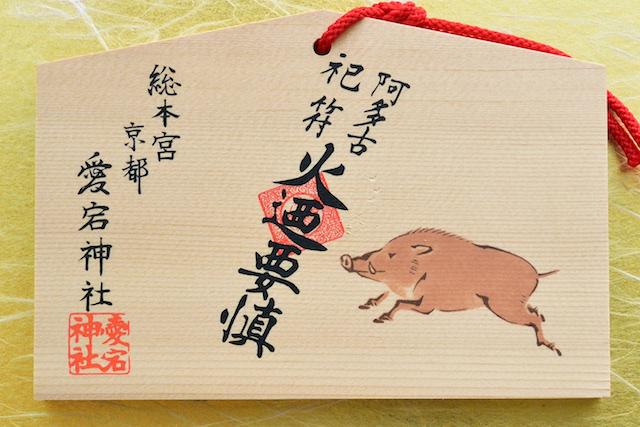 阿多古
祀符
火迺要慎
総本宮
京都
愛宕神社
愛宕
神社